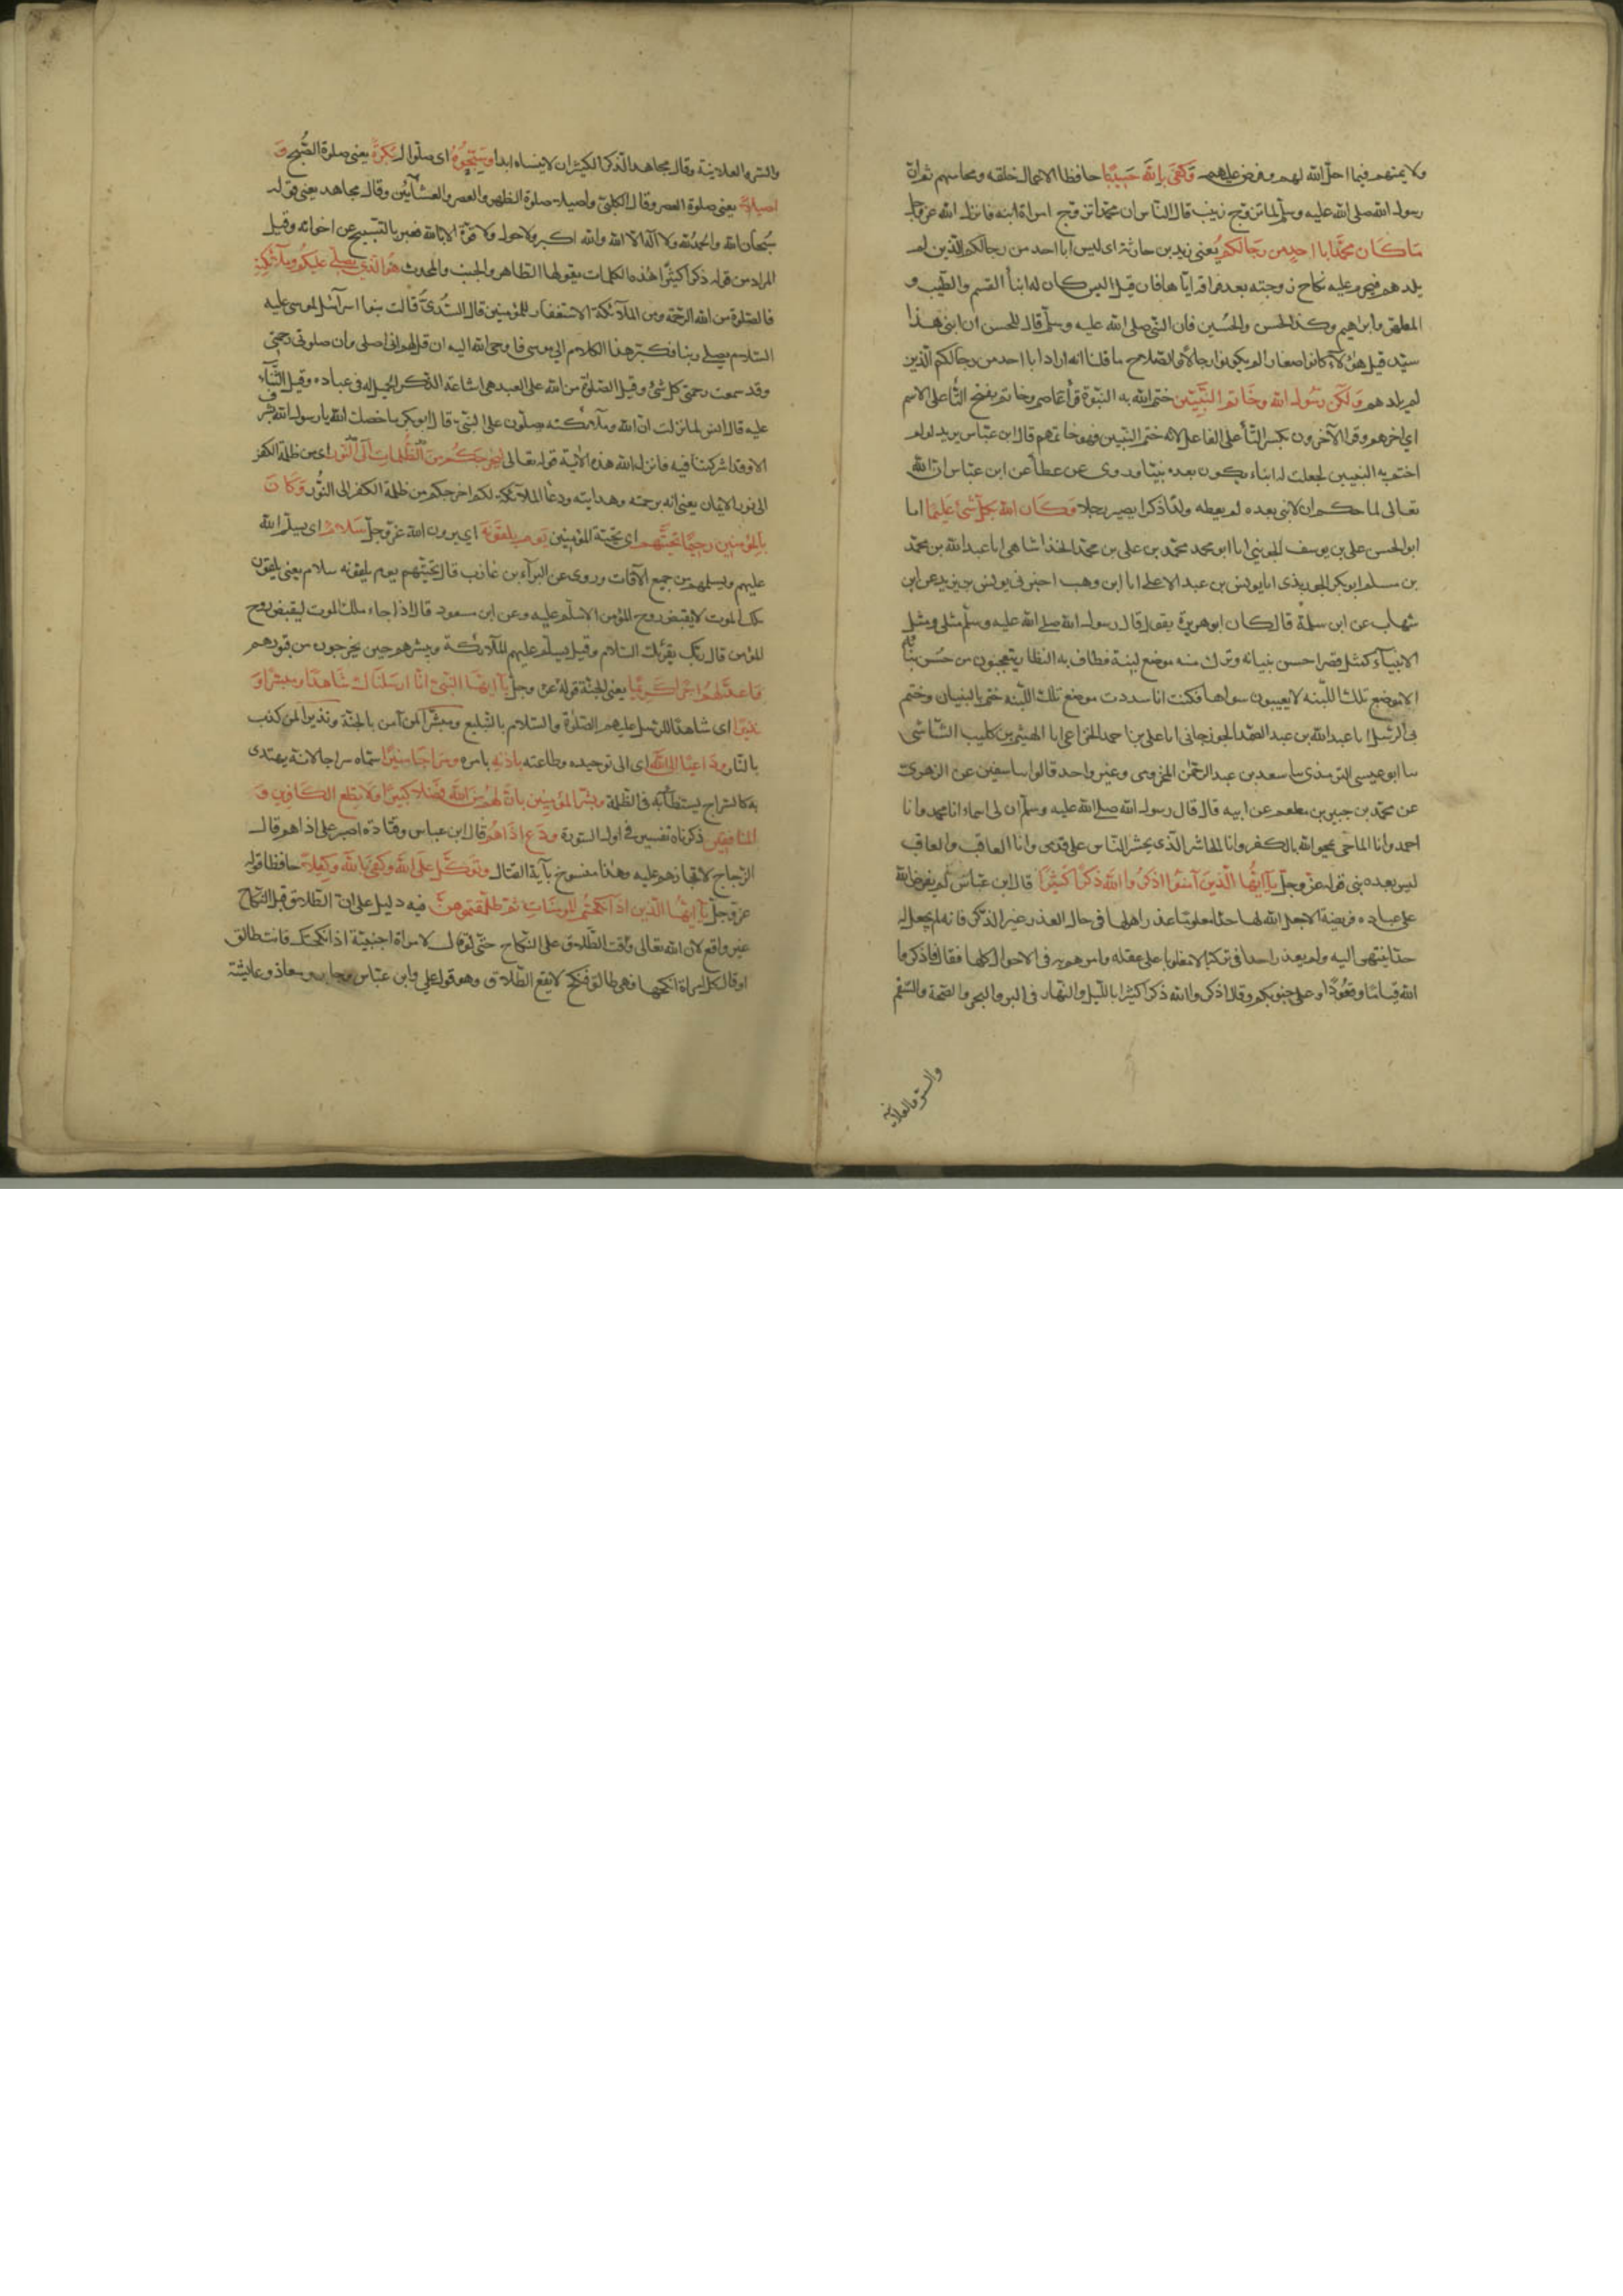 ولا يمنهم فيما احل الله لهم وفرض عليهم وكفى بالله حسيبا حافظا لاعمال خلقه ومحاسبهم ثم ان
رسول الله صلى الله عليه وسلم لما تزوج زينب قال الناس ان محمدا تزوج امراة ابنه فانزل الله عز وجل
ما كان محمد ابا احد من رجالكم يعني زيد بن حارثة اى ليس ابا احد من رجالكم الذين لم
يلدهم فيحرم عليه نكاح زوجته بعد فراقه اياها فان قيل اليس كان له ابنا القسم والطيب و
المطهر وابراهيم وكذا الحسن والحسين فان النبي صلى الله عليه وسلم قال للحسن ان ابني هذا
سيد قيل هؤلاء كانوا صغارا لم يكونوا رجالا والصلاح ما قلنا انه اراد ابا احد من رجالكم الذين
لم يلدهم ولكن رسول الله وخاتم النبيين ختم الله به النبوة قرأ عاصم وخاتم بفتح التا على الاسم
اي اخرهم وقرا الآخرون بكسر التأ على الفاعل لانه ختم النبيين فهو خاتمهم قال ابن عباس يريد لو لم
اختم به النبيين لجعلت له ابناء يكون بعده نبيا وروى عن عطا عن ابن عباس ان الله
تعالى لما حكم ان لا نبي بعده لم يعطه ولدا ذكرا يصير رجلا وكان الله بكل شئ عليما اما
ابو الحسن علي بن يوسف الجويني انا ابو محمد محمد بن علي بن محمد الخذاشاهي انا عبد الله بن محمد
بن مسلم ابو بكر الجوربذى انا يونس بن عبد الاعلى انا ابن وهب اخبرني يونس بن يزيد عن ابن
شهاب عن ابي سلمة قال كان ابو هريرة يقول قال رسول الله صلى الله عليه وسلم مثلي ومثل
الانبياء كمثل قصر احسن بنيانه وترك منه موضع لبنة فطاف به النظار يتعجبون من حسن بنائه
الا موضع تلك اللبنه لا يعيبون سواها فكنت انا سددت موضع تلك اللبنه ختم بي البنيان وختم
بي الرسل انا عبد الله بن عبد الصمد الجوزجاني انا علي بن احمد الخزاعي انا الهيثم بن كليب الشاشي
سا ابو عيسى الترمذي سا سعيد بن عبد الرحمن المخزومي وغير واحد قالوا سا سفين عن الزهري
عن محمد بن جبير بن مطعم عن ابيه قال قال رسول الله صلى الله عليه وسلم ان لي اسماء انا محمد وانا
احمد وانا الماحي يمحو الله بي الكفر وانا الحاشر الذي يحشر الناس على قدمي وانا العاقب والعاقب
ليس بعده نبي قوله عز وجل يا ايها الذين آمنوا اذكروا الله ذكرا كثيرا قال ابن عباس لم يفرض الله
على عباده فريضة الا جعل الله لها حدا معلوما عذر اهلها في حال العذر غير الذكر فانه لم يجعل له
حدا ينتهي اليه ولم يعذر احدا في تركه الا مغلوبا على عقله وامرهم به في الاحوال كلها فقال فاذكروا
الله قياما وقعودا وعلى جنوبكم وقال اذكروا الله ذكرا كثيرا بالليل والنهار في البر والبحر والصحة والسقم
والسر والعلانية
والسر والعلانية وقال مجاهد الذكر الكثير ان لا ينساه ابدا وسبحوه اى صلوا له بكرة يعني صلوة الصبح و
اصيلا يعني صلوة العصر وقال الكلبي واصيلا صلوة الظهر والعصر والعشائين وقال مجاهد يعني قوله
سبحان الله والحمد لله ولا اله الا الله والله اكبر ولا حول ولا قوة الا بالله فعبر بالتسبيح عن اخواته وقيل
المراد من قوله ذكرا كثيرا هذه الكلمات يقولها الطاهر والجنب والمحدث هو الذي يصلي عليكم وملائكته
فالصلوة من الله الرحمة ومن الملائكة الاستغفار للمؤمنين قال السدي قالت بنوا اسرآئيل لموسى عليه
السلام يصلي ربنا فكبر هذا الكلام الى موسى فاوحى الله اليه ان قل لهم اني اصلي وان صلوتي رحمتي
وقد سعت رحمتي كل شئ وقيل الصلوة من الله على العبد هي اشاعة الذكر الجميل له في عباده وقيل الثناء
عليه قال انس لما نزلت ان الله وملائكته يصلون على النبي قال ابو بكر ما خصك الله يا رسول الله بشرف
الا وقد اشركتنا فيه فانزل الله هذه الآية قوله تعالى ليخرجكم من الظلمات الى النور اى من ظلمة الكفر
الى نور الايمان يعني انه برحمته وهدايته ودعا الملائكة لكم اخرجكم من ظلمة الكفر الى النور وكان
بالمؤمنين رحيما تحيتهم اى تحية المؤمنين يوم يلقونه اي يرون الله عز وجل سلام اى يسلم الله
عليهم ويسلمهم من جميع الآفات وروى عن البرآء بن عازب قال تحيتهم يوم يلقونه سلام يعني يلقون
ملك الموت لا يقبض روح المؤمن الا سلم عليه وعن ابن مسعود قال اذا جاء ملك الموت ليقبض روح
المؤمن قال ربك يقرئك السلام وقيل يسلم عليهم الملائكة ويبشرهم حين يخرجون من قبورهم
واعد لهم اجرا كريما يعني الجنة قوله عز وجل يآ ايها النبي انا ارسلناك شاهدا ومبشرا و
نذيرا اى شاهدا للرسل عليهم الصلوة والسلام بالتبليغ ومبشرا لمن آمن بالجنة ونذيرا لمن كذب
بالنار وداعيا الى الله اى الى توحيده وطاعته باذنه بامره وسراجا منيرا سماه سراجا لانه يهتدى
به كالسراج يستضآء به في الظلمة وبشر المؤمنين بان لهم من الله فضلا كبيرا ولا تطع الكافرين و
المنافقين ذكرناه تفسيره في اول السورة ودع اذاهم قال ابن عباس وقتادة اصبر على اذاهم وقال
الزجاج لا تجازهم عليه وهذا منسوخ بآية القتال وتوكل على الله وكفى بالله وكيلا حافظا قوله
عز وجل يآ ايها الذين اذا نكحتم المؤمنات ثم طلقتموهن فيه دليل على ان الطلاق قبل النكاح
غير واقع لان الله تعالى رتب الطلاق على النكاح حتى لو قال لامراة اجنبية اذا نكحتك فانت طالق
او قال كل امراة انكحها فهي طالق فنكح لا يقع الطلاق وهو قول علي وابن عباس وجابر ومعاذ وعايشة